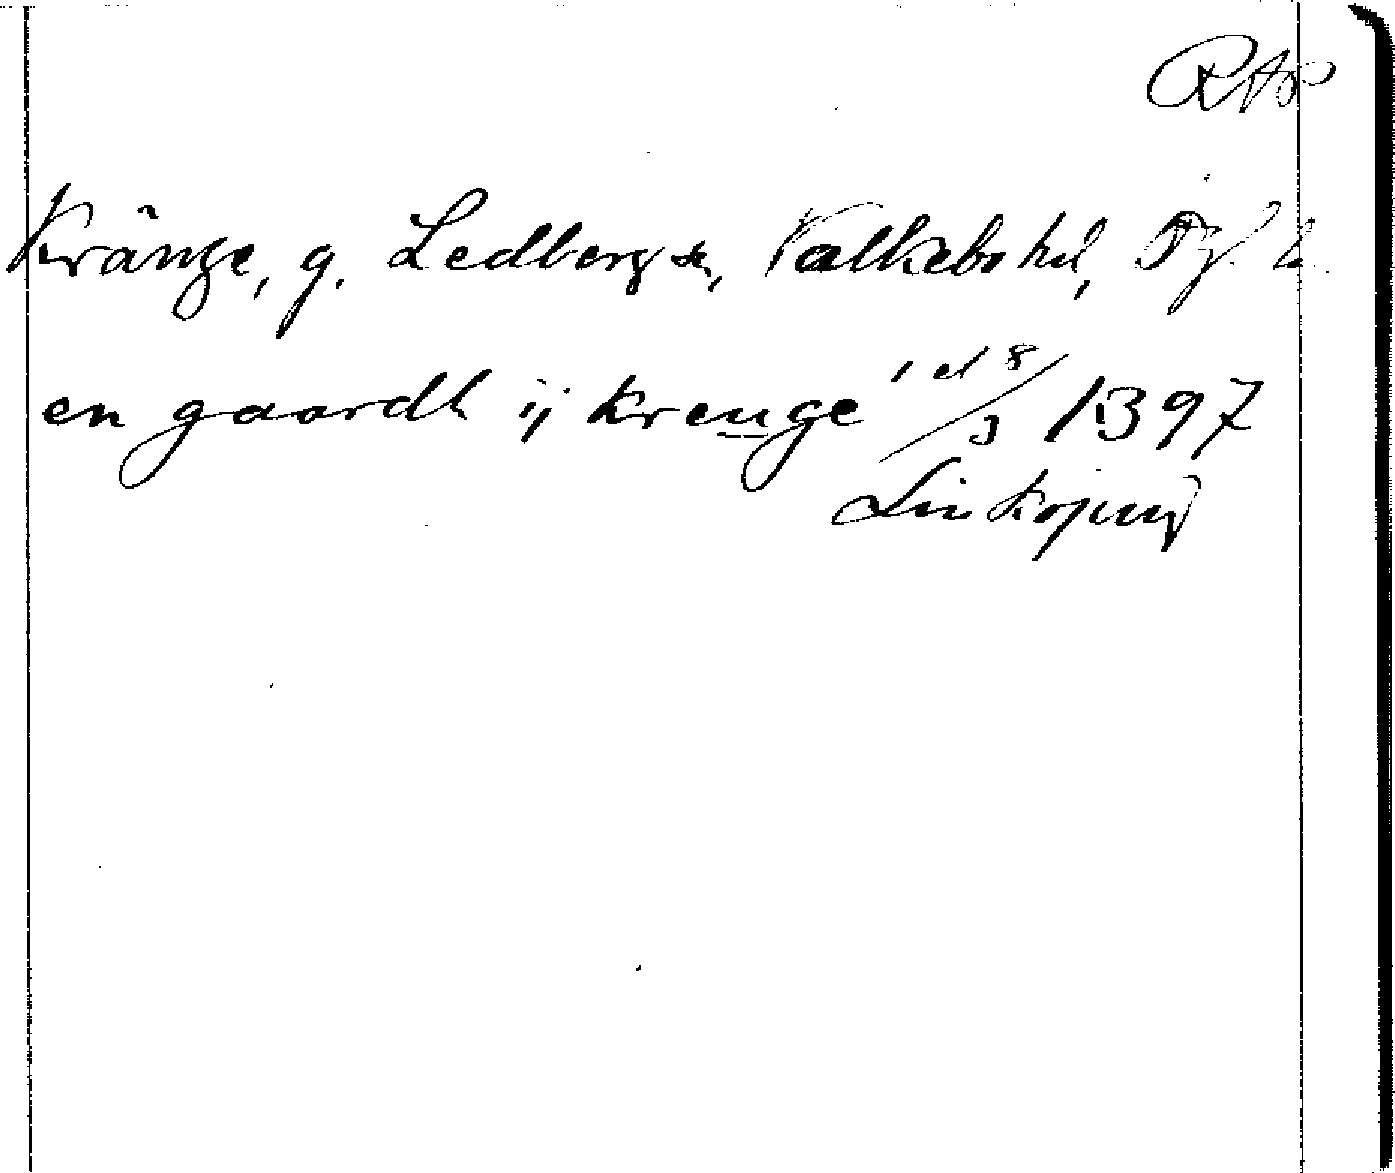 RAP
Kränge, g. Ledbergs sn, Valkebo hd, Ög. l.
en gaardh ij krenge 1 el 8/3 1397
Linköping